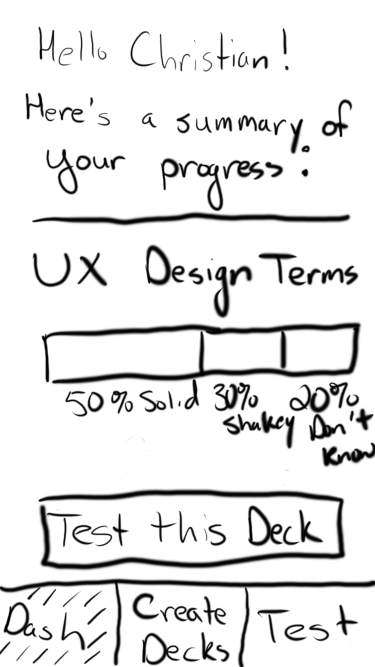 Hello Christian!
Here's a summary of
your progress:
UX Design Terms
50% Solid 30% Shakey 20% Don't Know
Test this Deck
Dash
Create Decks
Test